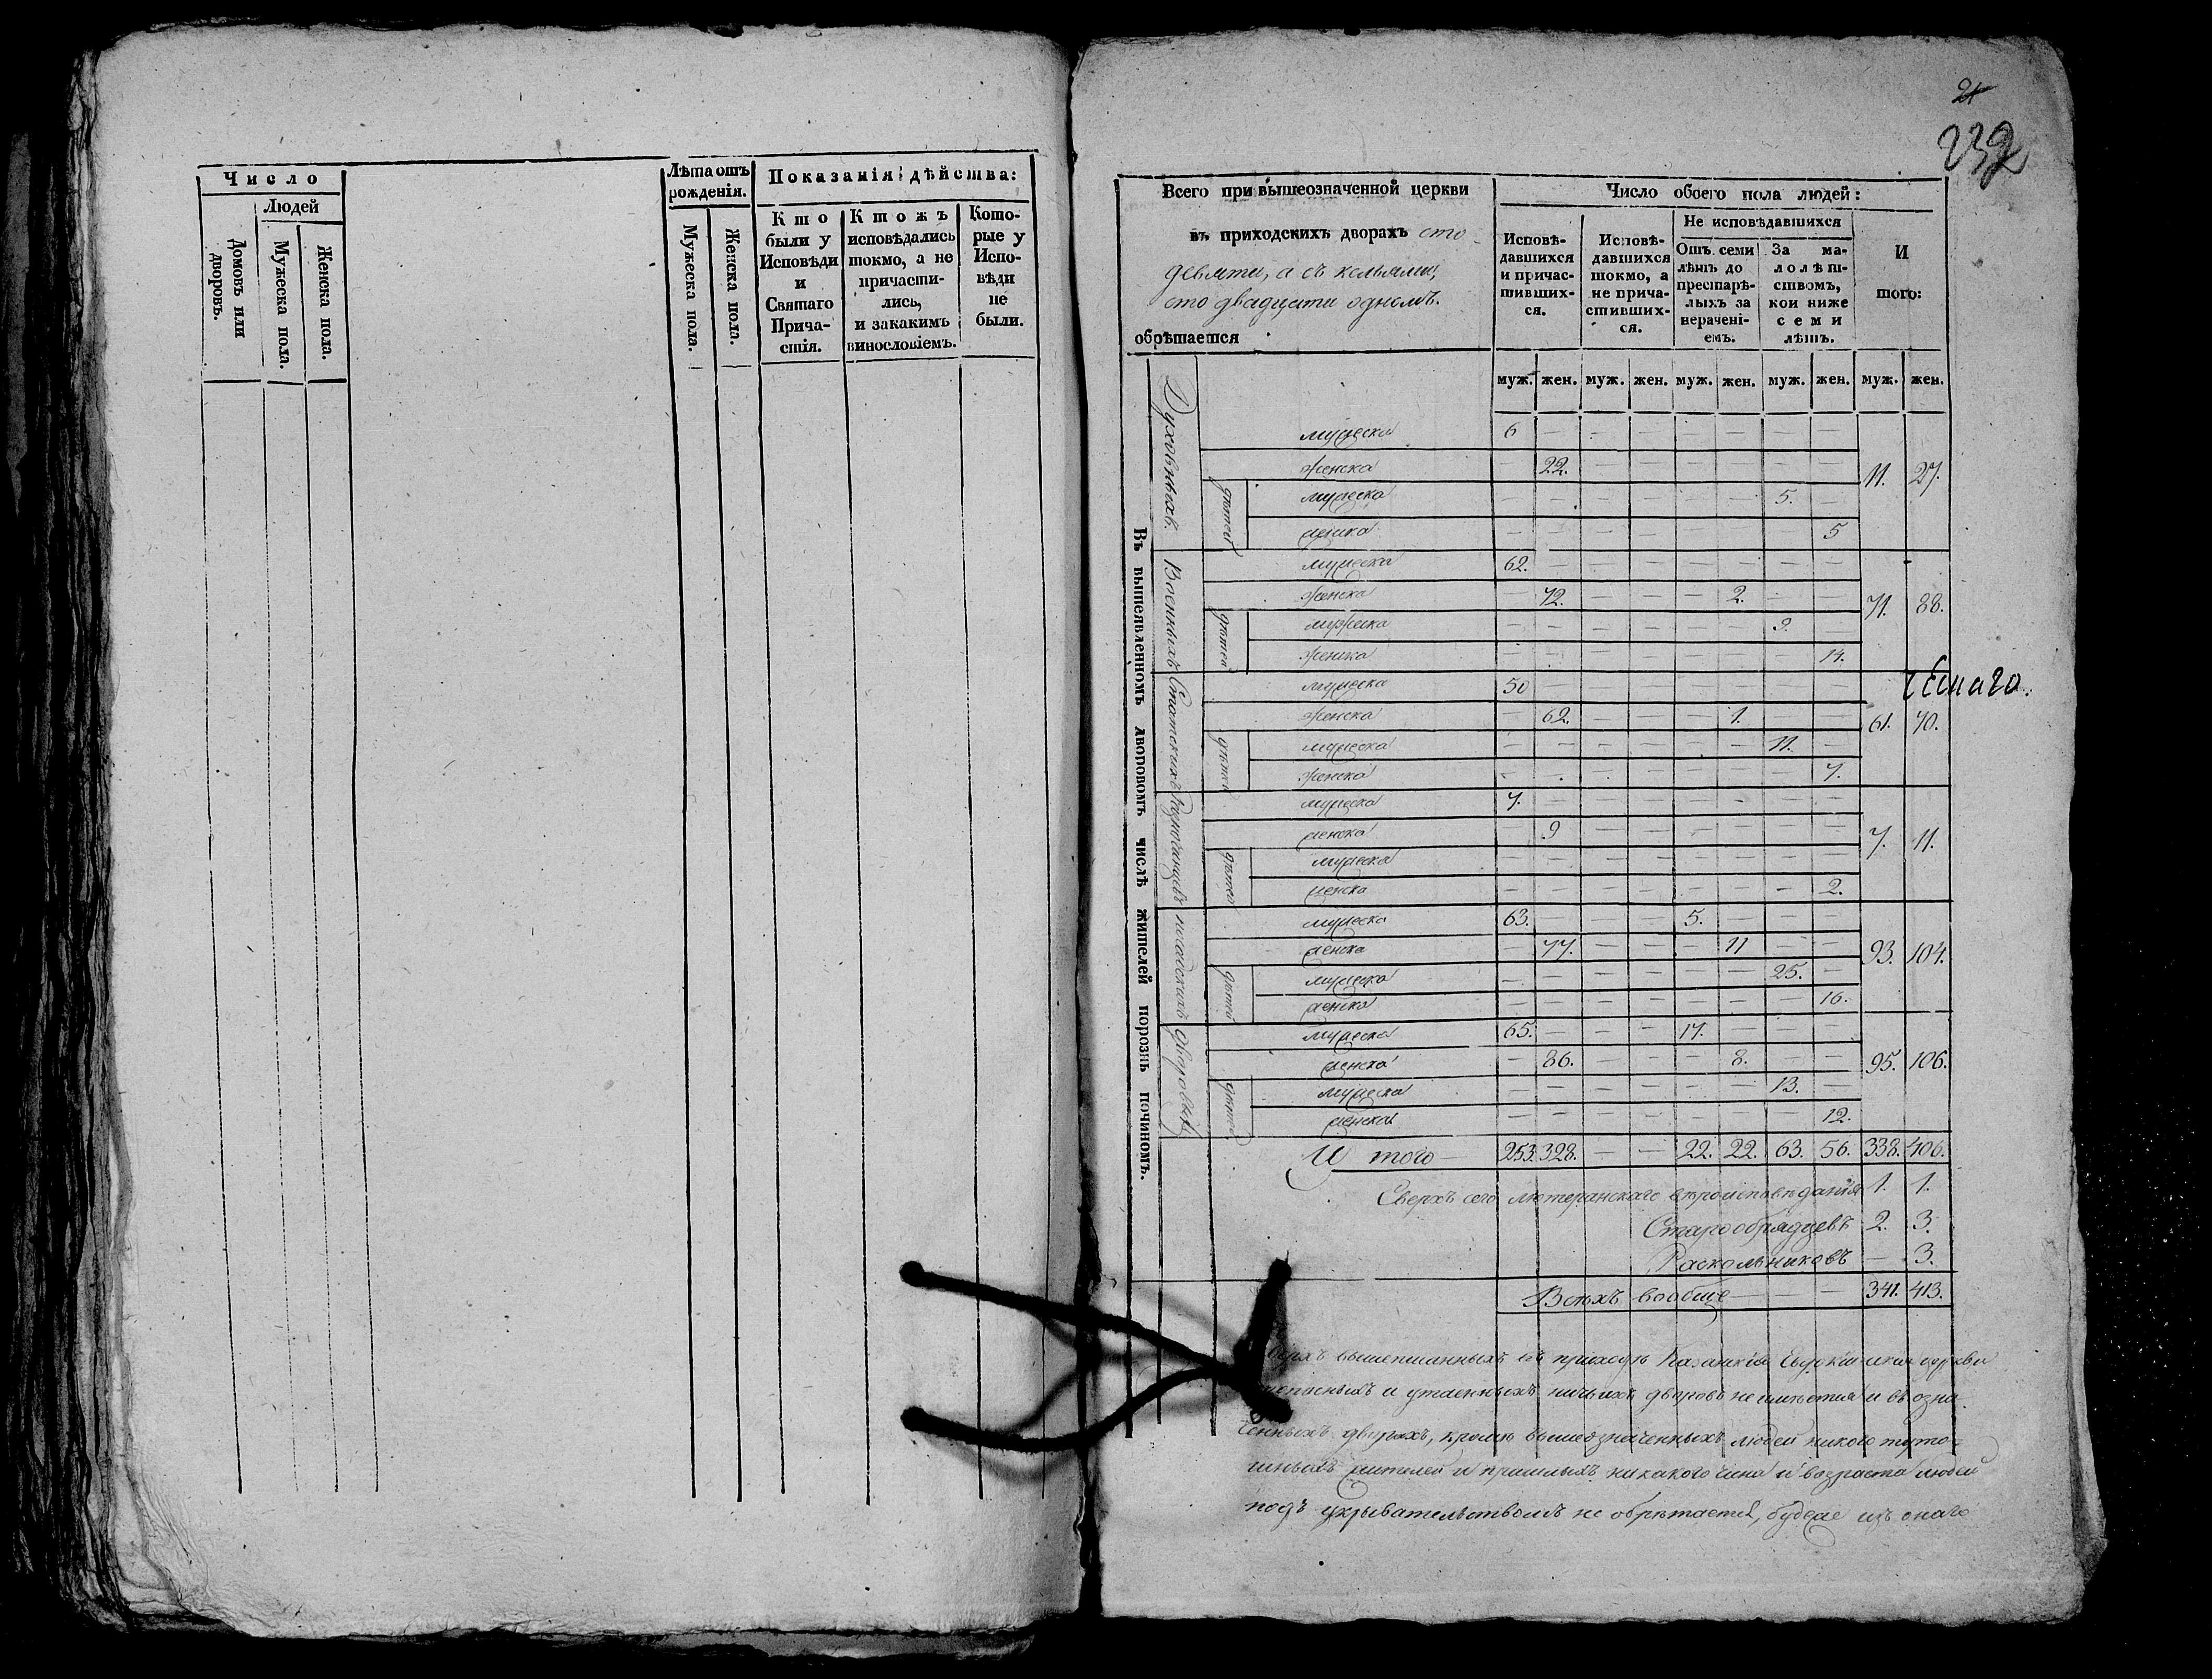 Число
Людей
Домовъ или дворовъ.
Мужеска пола.
Женска пола.
Лѣта отъ рожденія.
Мужеска пола.
Женска пола.
Показанія дѣйства:
Кто были у Исповѣди и Святаго Прича-стія.
Ктожъ исповѣдались токмо, а не причасти-лись, и закакимъ винословіемъ.
Кото-рые у Испо-вѣди не были.
21
232
Всего при вышеозначенной церкви
въ приходскихъ дворахъ сто
девяти, а съ кельями,
сто двадцати одномъ.
обрѣтается
Число обоего пола людей:
Исповѣ-давшихся и причас-тивших-ся.
Исповѣ-давшихся токмо, а не прича-стивших-ся.
Не исповѣдавшихся
Отъ семи лѣтъ до престарѣ-лыхъ за нерачені-емъ.
За ма-лолѣт-ствомъ, кои ниже семи лѣтъ.
И того:
муж. жен. муж. жен. муж. жен. муж. жен. муж. жен.
Въ вышеявленномъ дворовомъ числѣ жителей порознь починомъ.
Духовныхъ.
мужеска 6 — — — — — — —
женска — 22. — — — — — — 11. 27.
дѣтей
мужеска — — — — — — 5. —
женска — — — — — — — 5
Военныхъ
мужеска 62. — — — — — — —
женска — 72. — — — 2. — — 71. 88.
дѣтей
мужеска — — — — — — 9. —
женска — — — — — — — 14.
Статскихъ
мужеска 50 — — — — — — —
женска — 62. — — — 1. — — 61. 70.
дѣтей
мужеска — — — — — — 11. —
женска — — — — — — — 7.
мужеска 7. — — — — — — —
женска — 9 — — — — — — 7. 11.
дѣтей
мужеска — — — — — — — —
женска — — — — — — — 2.
посадскихъ
мужеска 63. — — — 5. — — —
женска — 77. — — — 11 — — 93. 104.
дѣтей
мужеска — — — — — — 25. —
женска — — — — — — — 16.
дворовыхъ
мужеска 65. — — — 17. — — —
женска — 86. — — — 8. — — 95. 106.
дѣтей
мужеска — — — — — — 13. —
женска — — — — — — — 12.
И того 253. 328. — — 22. 22. 63. 56. 338. 406.
Сверхъ сего лютеранскаго вѣроисповѣданія 1. 1.
Старообрядцевъ 2. 3.
Раскольниковъ — 3.
Всѣхъ вообще — — — 341. 413.
вышеписанныхъ въ приходѣ Казанскія церкви
и утаенныхъ ничьихъ дворовъ не имѣется и въ озна
ченныхъ дворахъ, кромѣ вышеозначенныхъ людей никого туто
шныхъ жителей и пришлыхъ никакого чина и возраста людей
подъ укрывательствомъ не обрѣтается, будеже изъ онаго